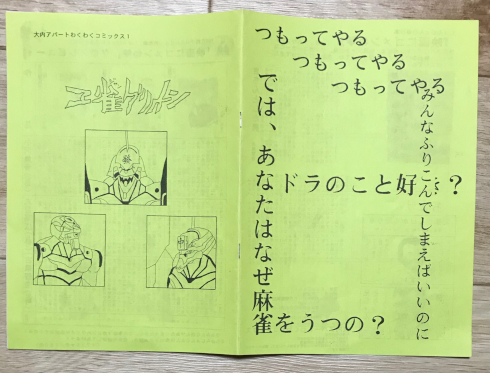 大内アパートわくわくコミックス1
つもってやる
つもってやる
つもってやる
みんなふりこんでしまえばいいのに
では、あなたはなぜ麻雀をうつの?
ドラのこと好き?